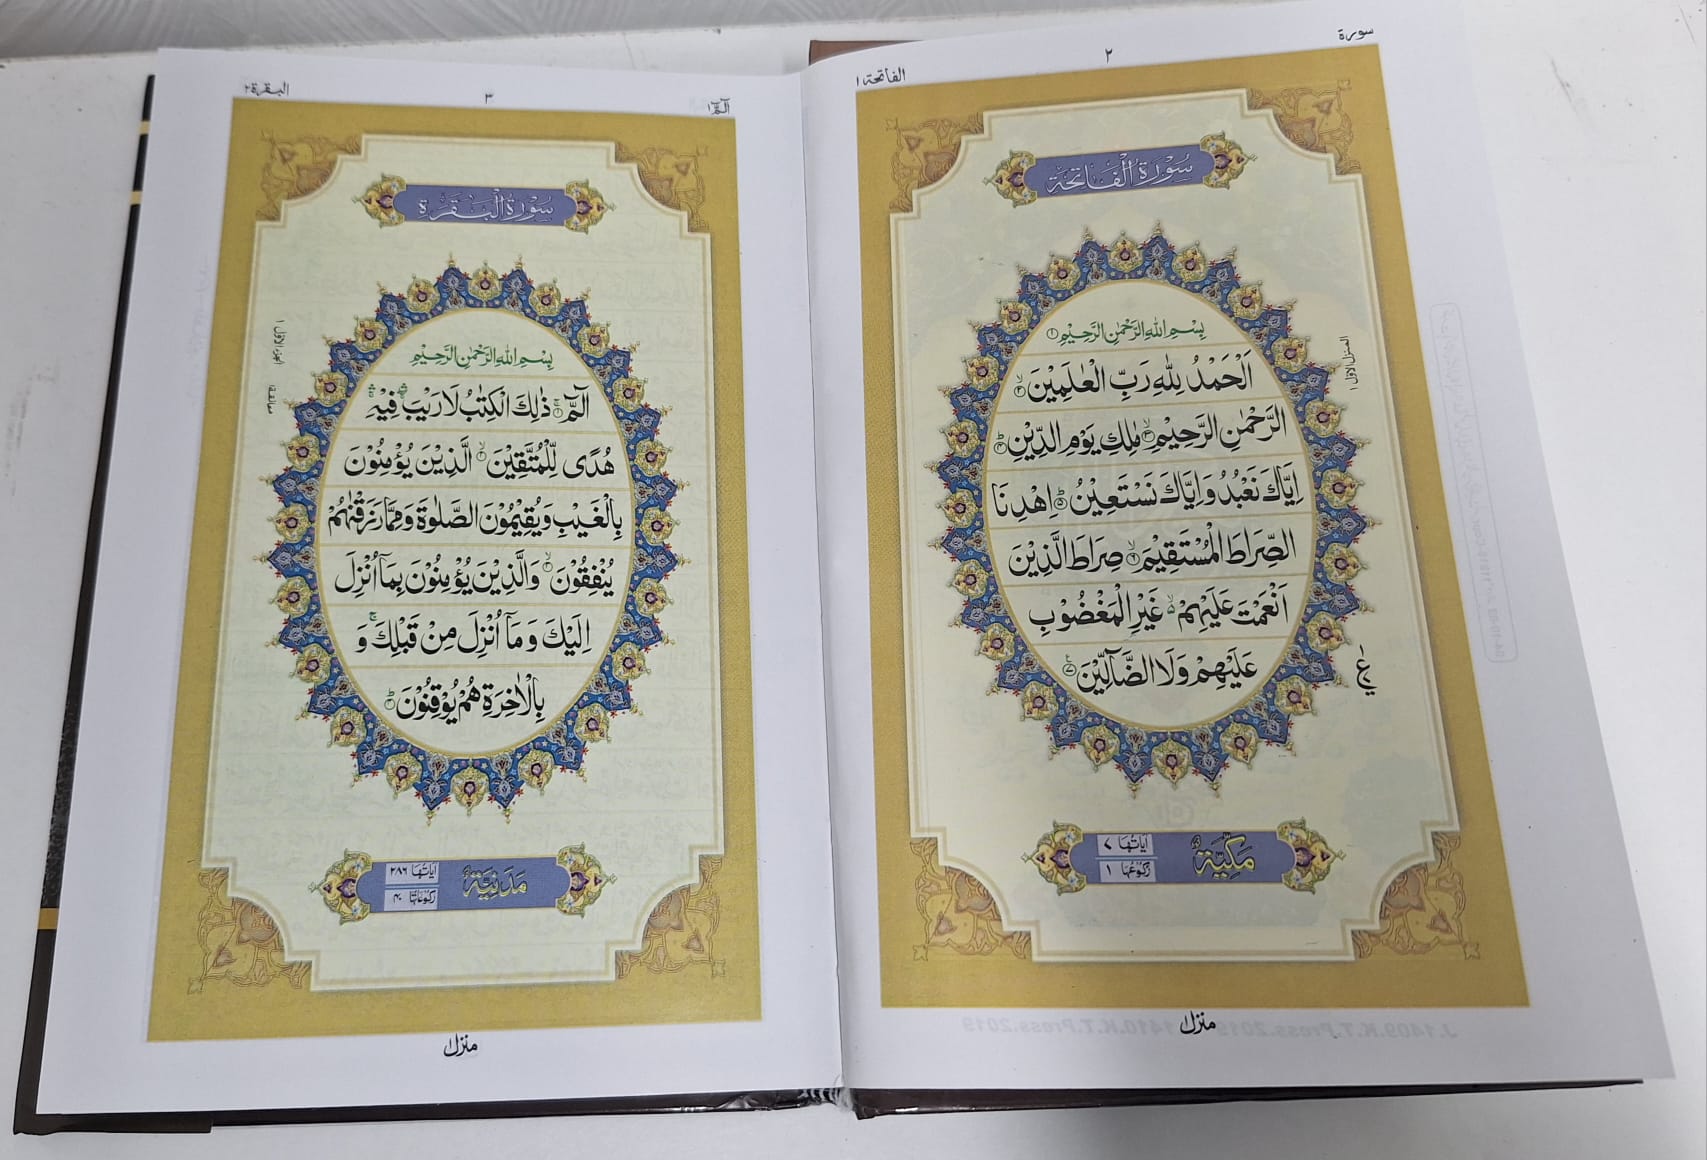 سورة
٢
الفاتحة ١
سُوْرَةُ الْفَاتِحَة
بِسْمِ اللّٰهِ الرَّحْمٰنِ الرَّحِيْمِ ١
اَلْحَمْدُ لِلّٰهِ رَبِّ الْعٰلَمِيْنَ ۙ ٢
الرَّحْمٰنِ الرَّحِيْمِ ۙ ٣ مٰلِكِ يَوْمِ الدِّيْنِ ؕ ٤
اِيَّاكَ نَعْبُدُ وَاِيَّاكَ نَسْتَعِيْنُ ؕ ٥ اِهْدِنَا
الصِّرَاطَ الْمُسْتَقِيْمَ ۙ ٦ صِرَاطَ الَّذِيْنَ
اَنْعَمْتَ عَلَيْهِمْ ۙ۬ غَيْرِ الْمَغْضُوْبِ
عَلَيْهِمْ وَلَا الضَّآلِّيْنَ ٧
المنزل الاوّل ١
مَكِّيَّةٌ
اٰيَاتُهَا ٧
رُكُوْعُهَا ١
منزل ١
الٓمّٓ ١
٣
البقرة ٢
سُوْرَةُ الْبَقَرَة
بِسْمِ اللّٰهِ الرَّحْمٰنِ الرَّحِيْمِ
الٓمّٓ ۚ ١ ذٰلِكَ الْكِتٰبُ لَا رَيْبَ ۛۖ فِيْهِ ۛۚ
هُدًى لِّلْمُتَّقِيْنَ ۙ ٢ الَّذِيْنَ يُؤْمِنُوْنَ
بِالْغَيْبِ وَيُقِيْمُوْنَ الصَّلٰوةَ وَمِمَّا رَزَقْنٰهُمْ
يُنْفِقُوْنَ ۙ ٣ وَالَّذِيْنَ يُؤْمِنُوْنَ بِمَآ اُنْزِلَ
اِلَيْكَ وَمَآ اُنْزِلَ مِنْ قَبْلِكَ ۚ وَ
بِالْاٰخِرَةِ هُمْ يُوْقِنُوْنَ ؕ ٤
الجزء الاوّل ١
معانقة ١
مَدَنِيَّةٌ
اٰيَاتُهَا ٢٨٦
رُكُوْعَاتُهَا ٤٠
منزل ١